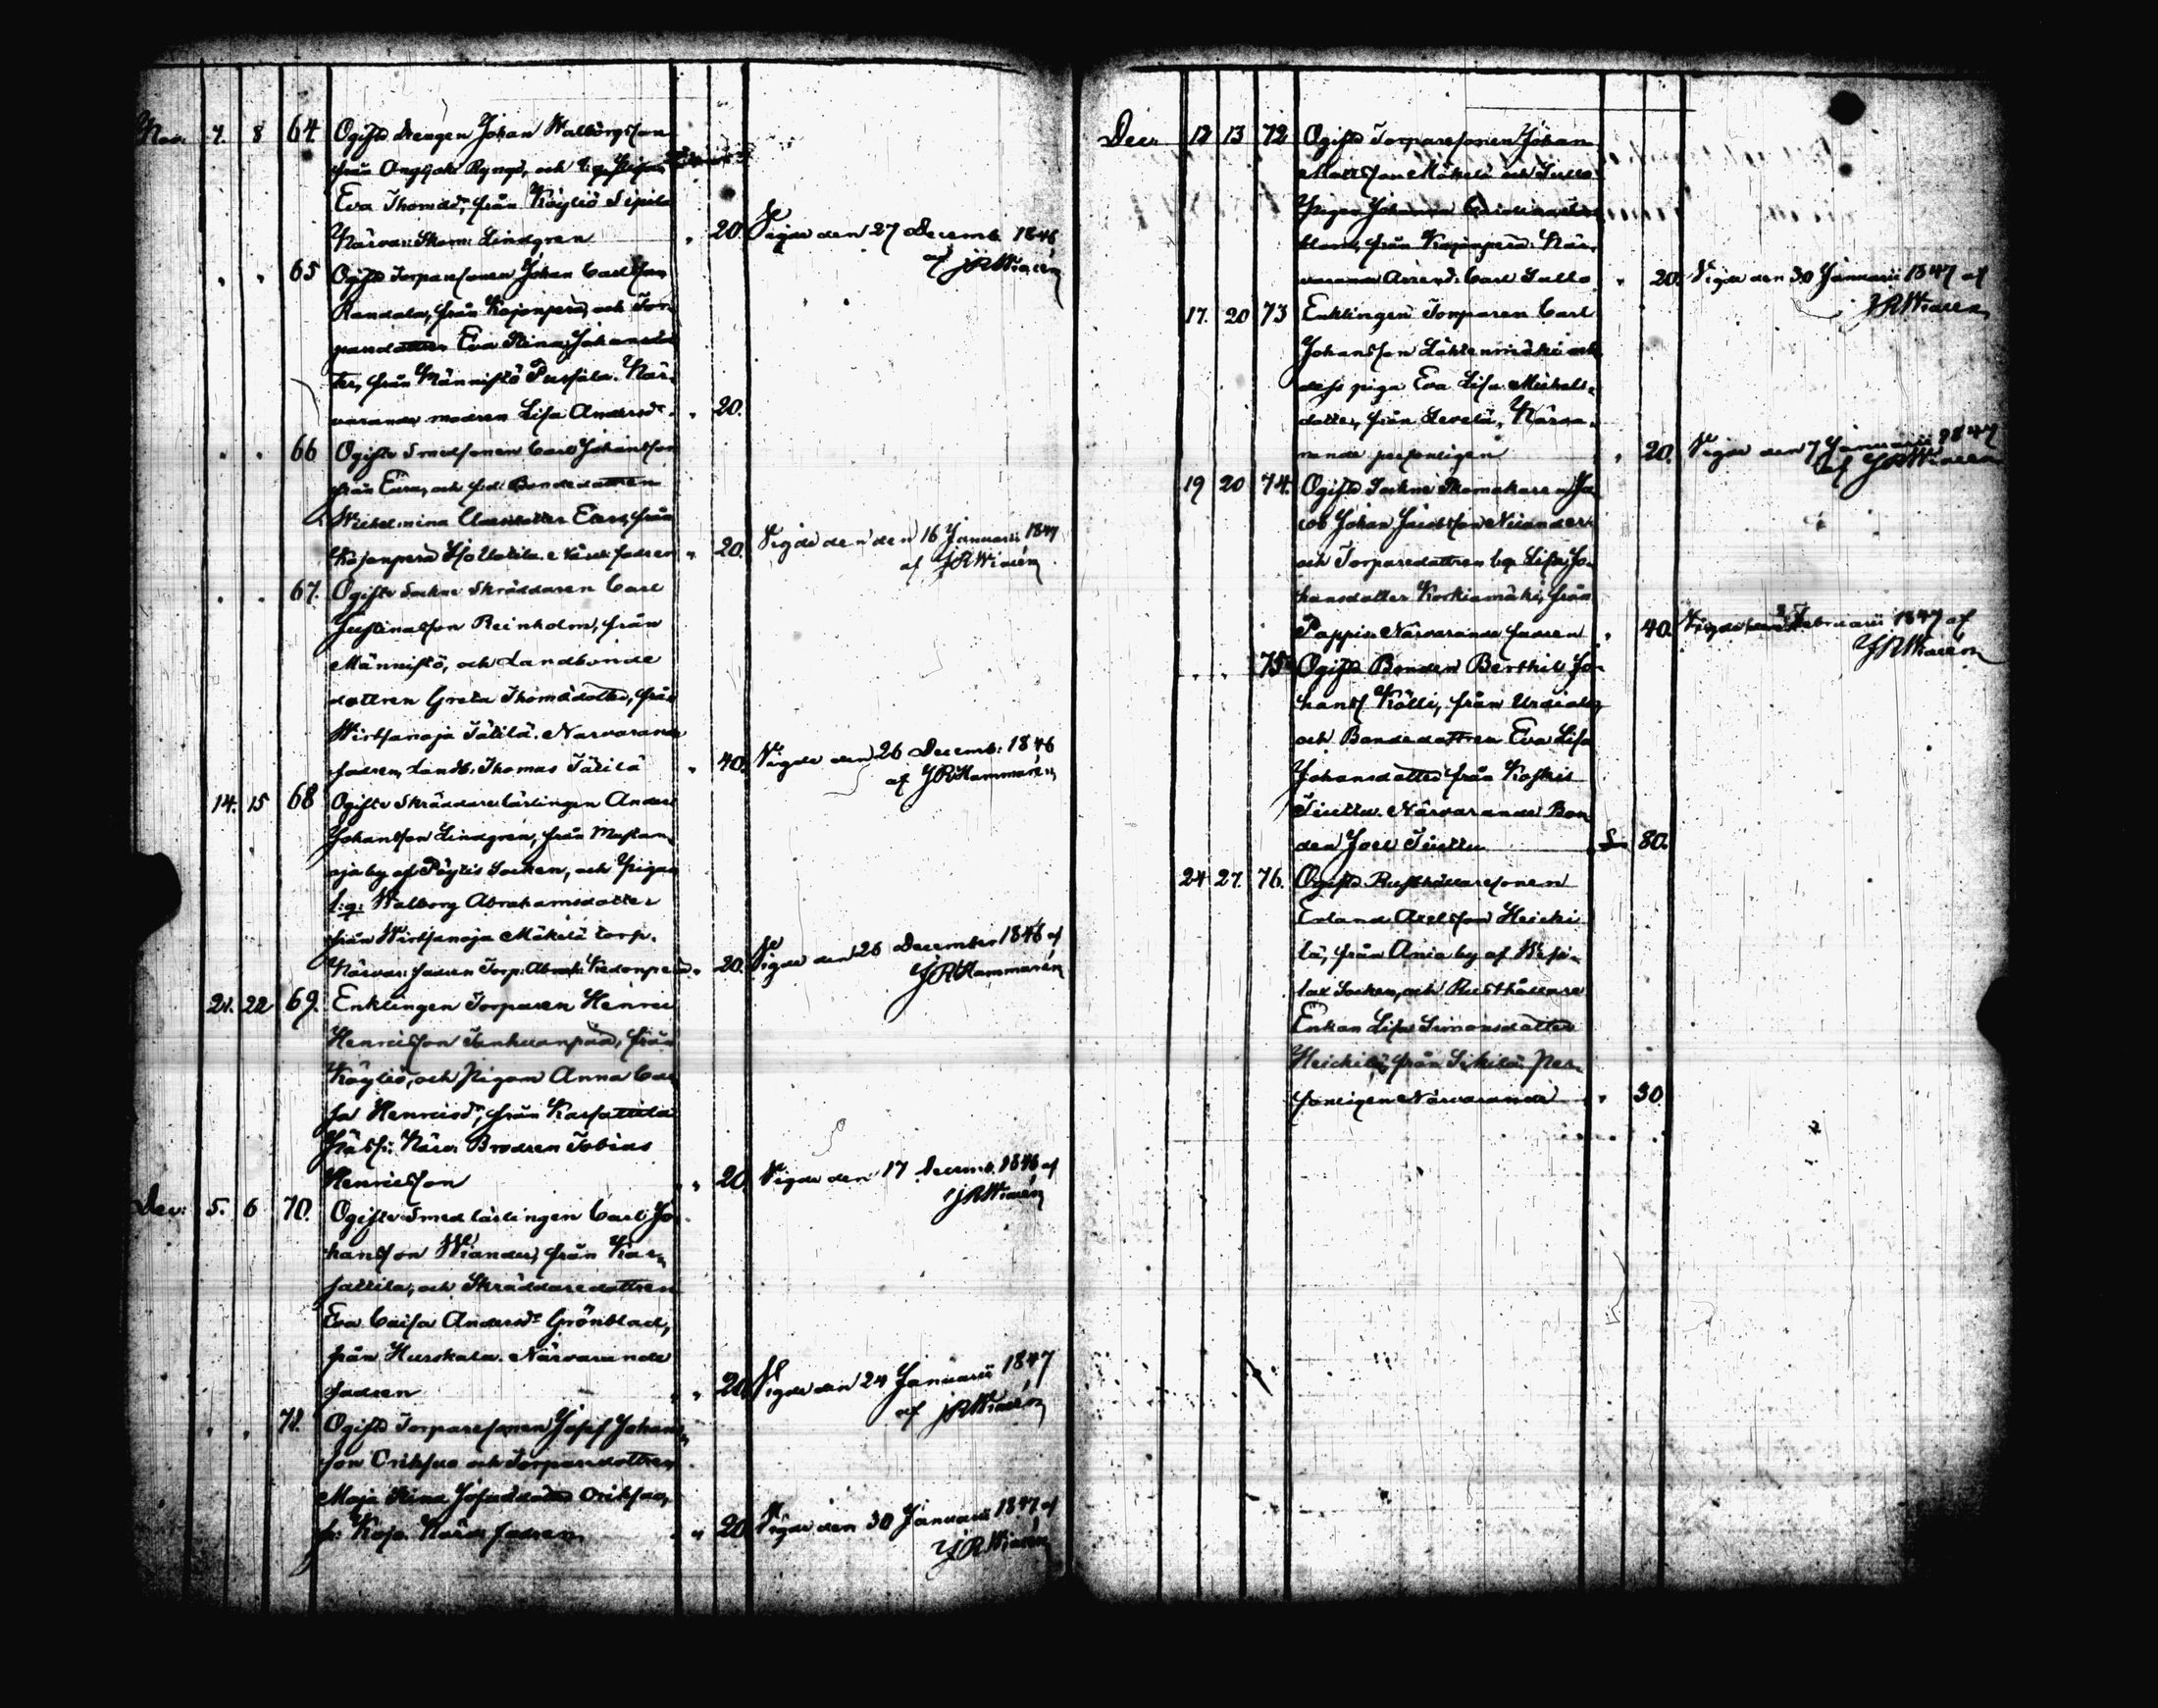 Nov. 7. 8 64 Ogifte Drengen Johan Walborgsson
från Ongljoki Ryngö, och
Eva Thomasdr, från Köyliö Sipilä
Närvar: Skom: Lindgren " 20. Vigde den 27 Decemb. 1846
af JRWidén
" " 65 Ogifte Torparesonen Johan Carlsson
Randala, från Kojonperä, och Tor-
paredottren Eva Stina Johansdot-
ter, från Männistö Pursila. När-
varande modren Lisa Andersdr. " 20.
" " 66 Ogifte Smedsonen Carl Johansson
från Eura, och f.d. Bondedottren
Wilhelmina från
Kojonperä fadren " 20. Vigde den den 16 Januarii 1847
af JRWidén
" " 67. Ogifte Sockne Skräddaren Carl
Justinasson Reinholm, från
Männistö, och Landbonde
dottren Greta Thomasdotter, från
Wirtsanoja Tätilä. Närvarande
fadren, Landb: Thomas Tätilä " 40. Vigde den 26 Decemb: 1846
af JRHammarén
14. 15 68 Ogifte Skräddarelärlingen Anders
Johansson Lindgren, från Mustan-
oja by af Pöytis Socken, och Pigan
Walborg Abrahamsdotter
från Wirtsanoja Mäkilä torp.
Närvar: fadren Torp: Abrah: " 20. Vigde den 26 December 1846 af
JRHammarén
21. 22 69. Enklingen Torparen Henric
Henricsson från
Köyliö, och Pigan Anna Cai-
sa Henricsdr, från Karsattila
Närv: Brodren Tobias
Henricsson " 20. Vigde den 17 Decemb. 1846 af
JRWidén
Dec: 5. 6 70. Ogifte Smedlärlingen Carl Jo-
hansson Wiander, från Kar-
sattila, och Skräddaredottren
Eva Caisa Andersdr Grönblad,
från Hurskala. Närvarande
fadren " 20. Vigde den 24 Januarii 1847
af JRWidén
" " 71. Ogifte Torparesonen Josef Johans-
son Orihsuo och Torparedottren
Maja Stina Josefsdotter Orihsuo,
fr: Kojo. Närv: fadren " 20. Vigde den 30 Januarii 1847 af
JRWidén
Decr 12 13 72 Ogifte Torparesonen Johan
Mattsson Mäkelä och Sullo
Pigan Johanna
från Kojonperä. När-
varande Arrend: Carl Sullo " 20. Vigde den 30 Januarii 1847 af
JRWidén
17. 20 73 Enklingen Torparen Carl
Johansson Lähtenmäki och
dess piga Eva Lisa Michels-
dotter, från Levelä, Närva-
rande personligen " 20. Vigde den 7 Januarii 1847
af JRWidén
19 20 74. Ogifte Sockne Skomakaren Ja-
cob Johan Jacobsson Niiander
och Torparedottren Lisa Jo-
hansdotter Korkiamäki, från
Pappis Närvarande fadren " 40. Vigde den Februarii 1847 af
JRWidén
" " 75 Ogifte Bonden Berthil Jo-
hanss Kölli, från Urdiala,
och Bondedottren Eva Lisa
Johansdotter från Koskis
Tiuttu. Närvarande Bon-
den Joel Tiuttu 80.
24 27. 76. Ogifte Rusthållaresonen
Erland Axelsson Heicki-
lä, från Ania by af Wesi-
lax Socken, och Rusthållare
Enkan Lisa Simonsdotter
Heickilä, från Sikilä. Per-
sonligen Närvarande " 30